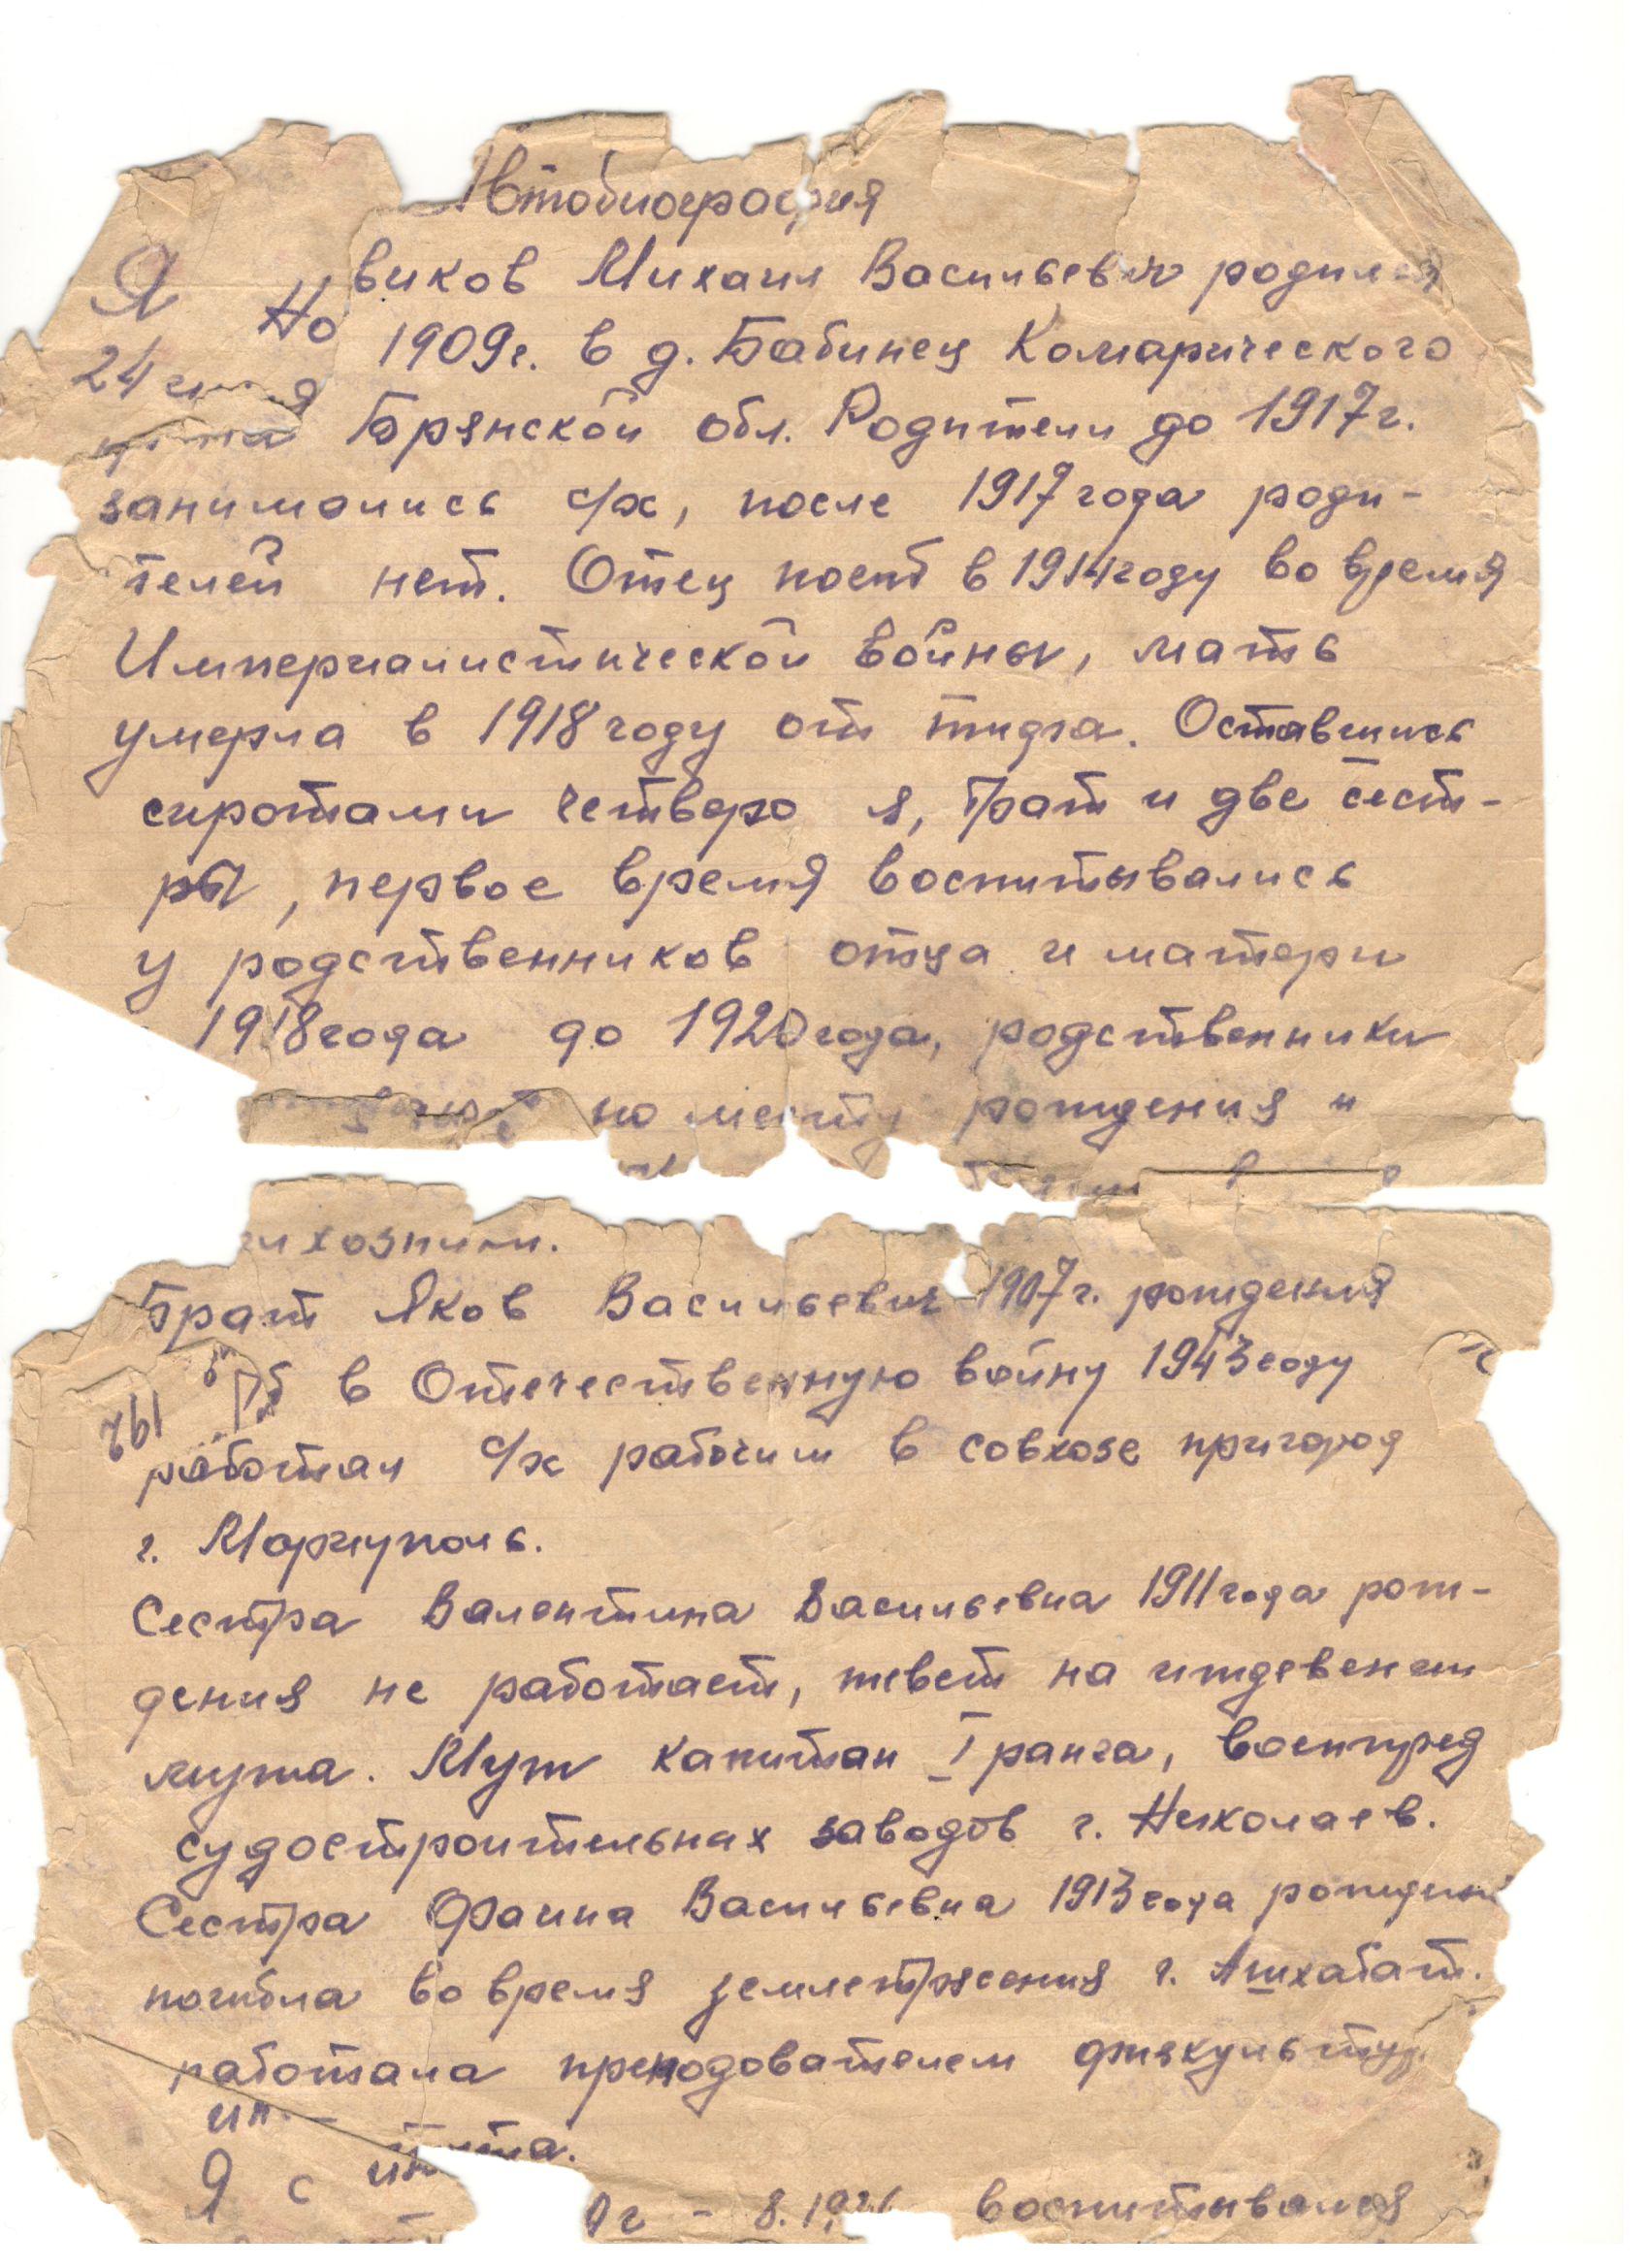 Автобиография
Я Новиков Михаил Васильевич родился
24 1909г. в д. Бабинец Комарического
Брянской обл. Родители до 1917г.
занимались с/х, после 1917 года роди-
телей нет. Отец погиб в 1914 году во время
Империалистической войны, мать
умерла в 1918 году от тифа. Оставшись
сиротами четверо я, брат и две сест-
ры, первое время воспитывались
у родственников отца и матери
1918 года до 1920 года, родственники
по месту рождения и
Брат Яков Васильевич 1907г. рождения
в Отечественную войну 1943 году
работал с/х рабочим в совхозе пригород
г. Мариуполь.
Сестра Валентина Васильевна 1911 года рож-
дения не работает, живет на иждевении
мужа. Муж капитан I ранга, военпред
судостроительных заводов г. Николаев.
Сестра Фаина Васильевна 1913 года рождени
погибла во время землетрясения г. Ашхабат.
работала преподователем физкультур
Я с
воспитывался